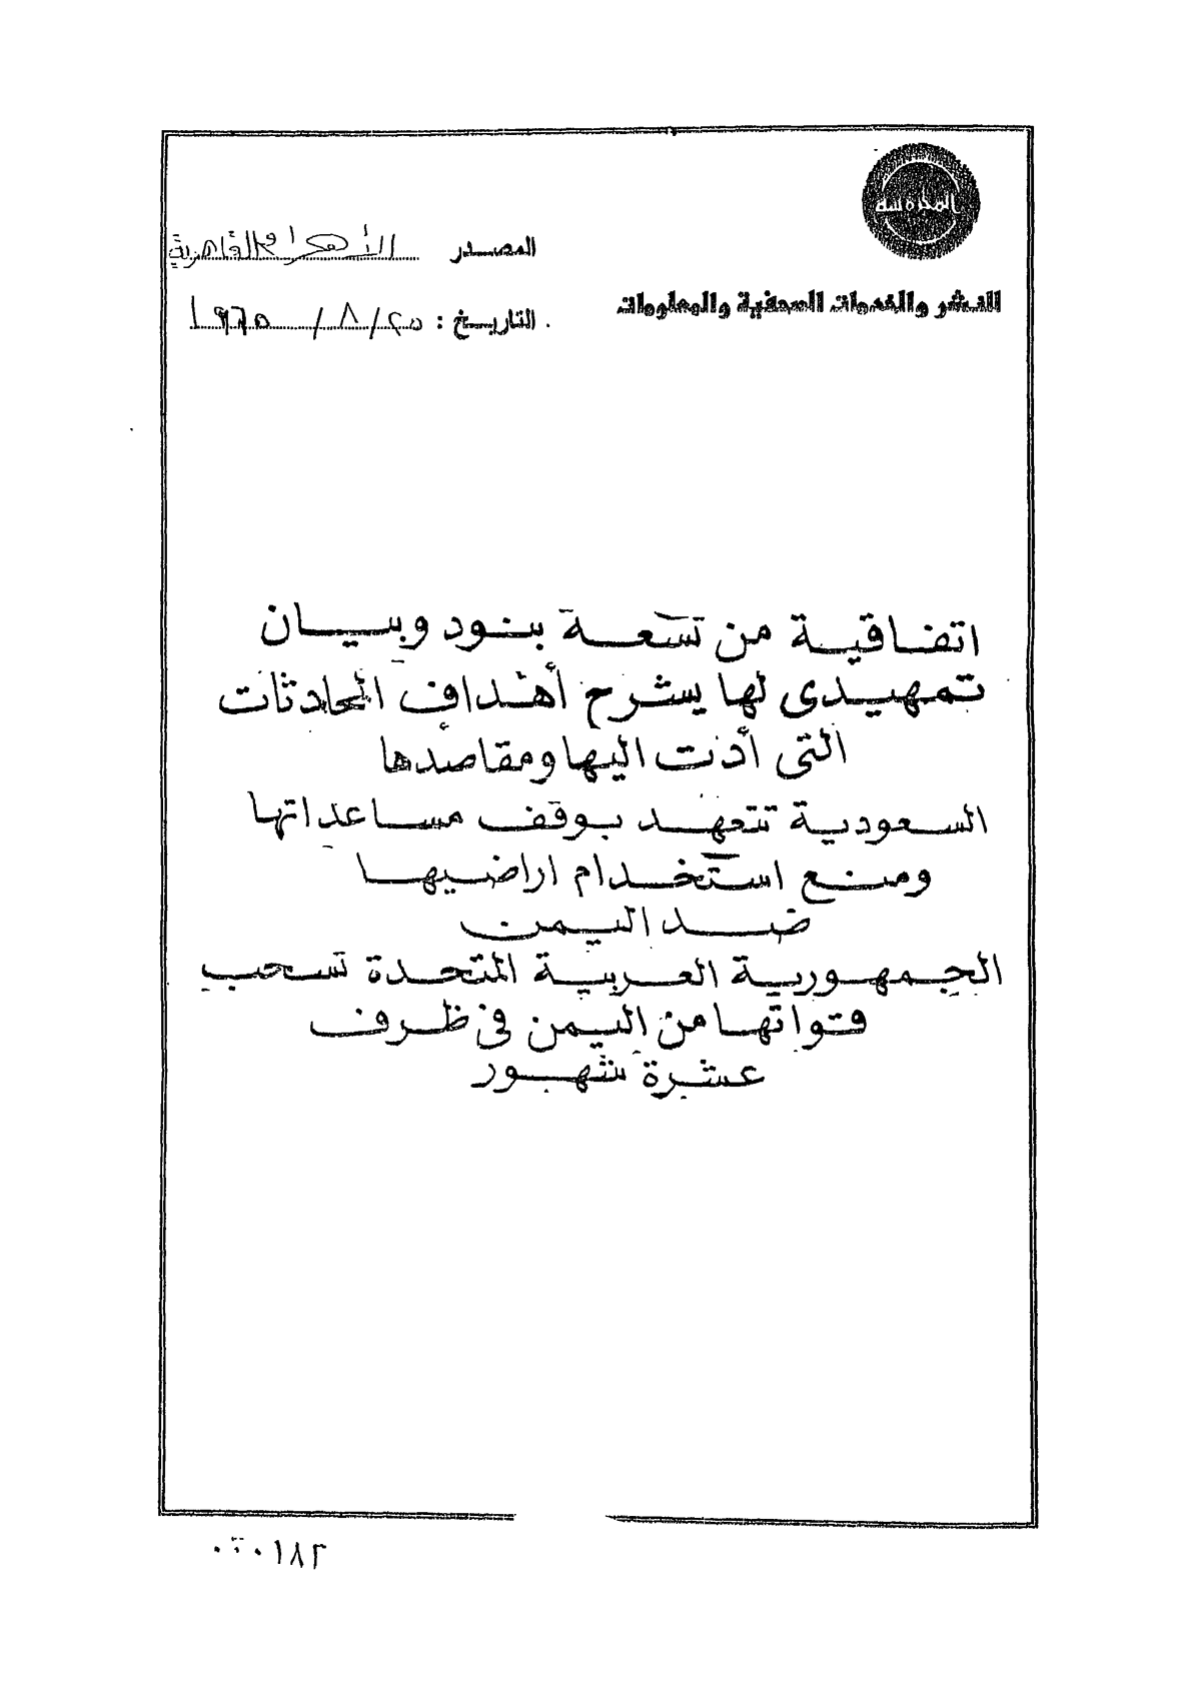 المحروسة
المصدر الأهرام القاهرية
للنشر والخدمات الصحفية والمعلومات
التاريخ : ٢٥ / ٨ / ١٩٦٥
اتفاقية من تسعة بنود وبيان
تمهيدى لها يشرح أهداف المحادثات
التى أدت اليها ومقاصدها
السعودية تتعهد بوقف مساعداتها
ومنع استخدام اراضيها
ضد اليمن
الجمهورية العربية المتحدة تسحب
قواتها من اليمن فى ظرف
عشرة شهور